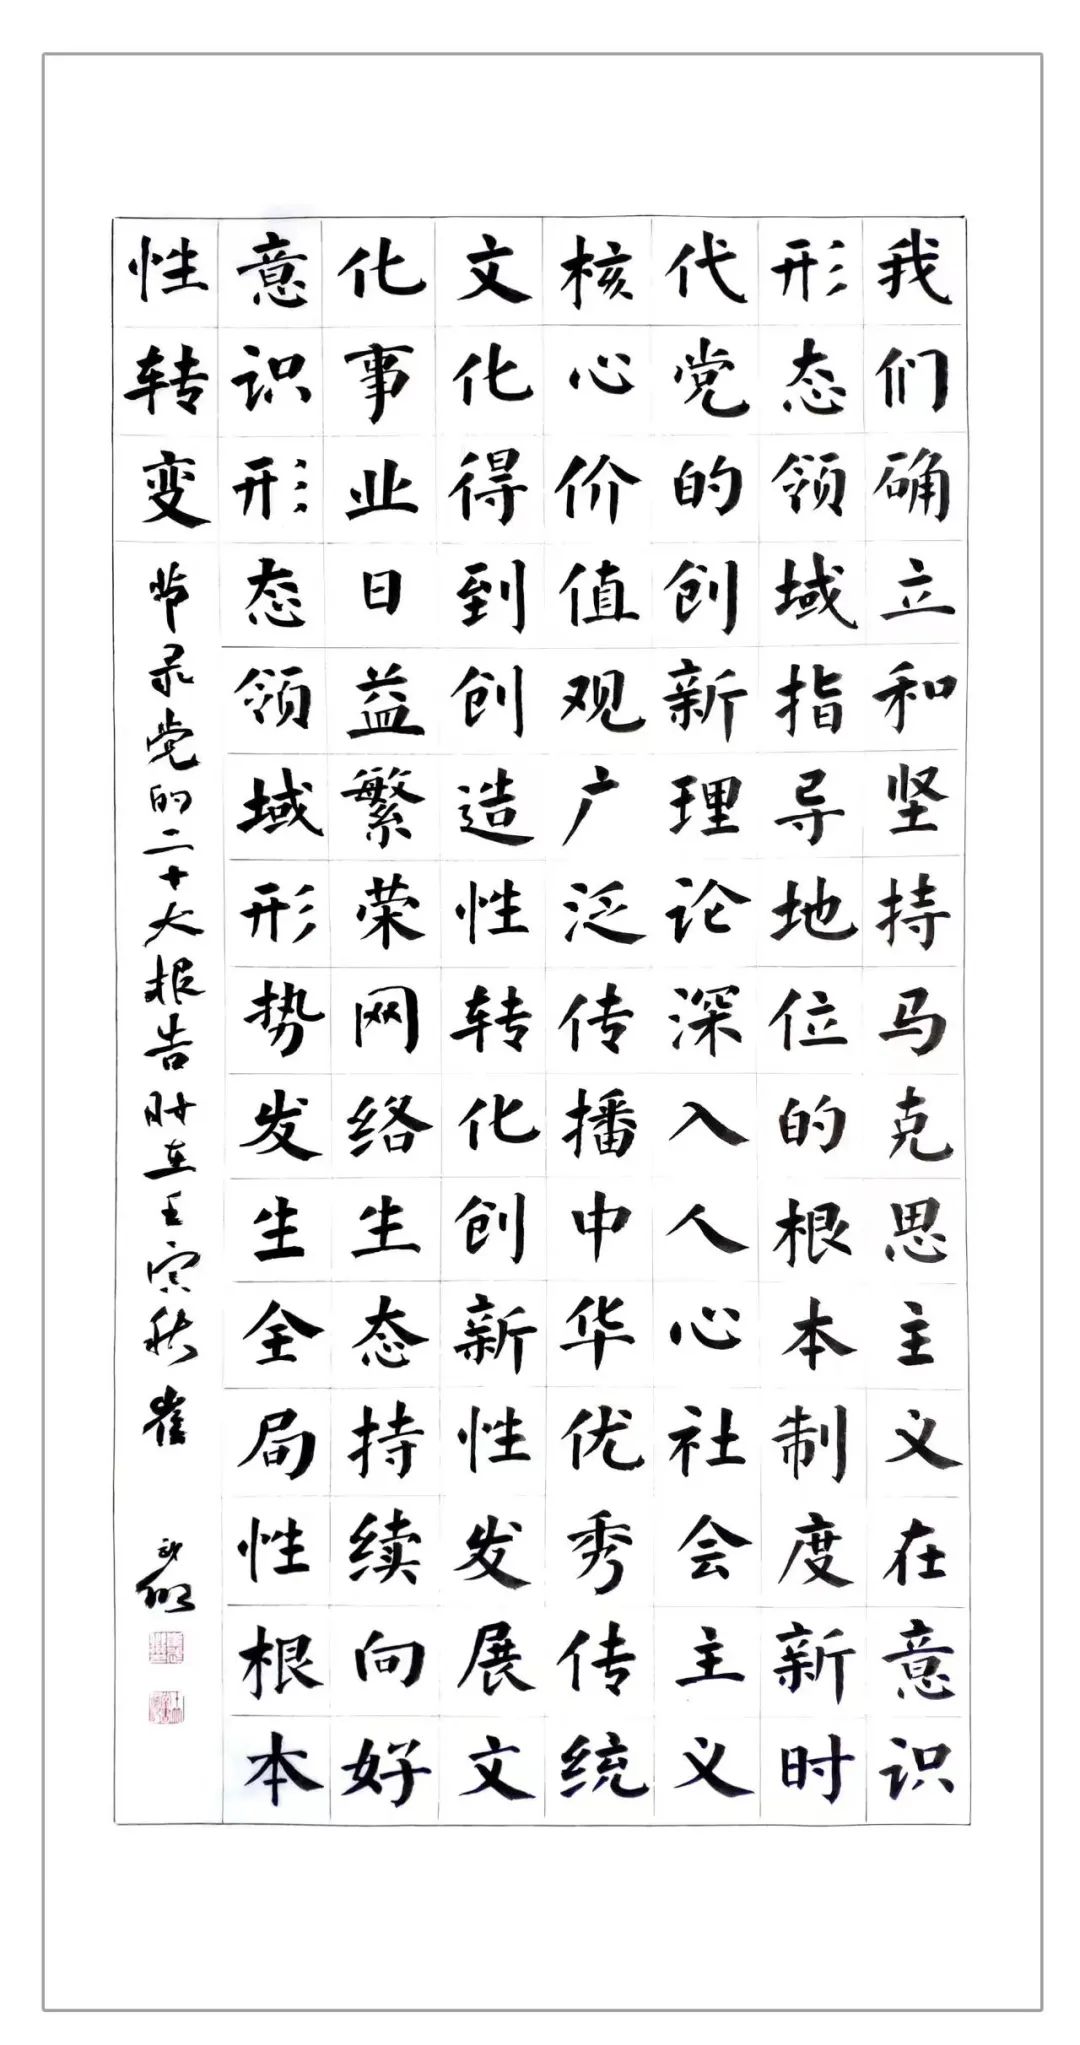 我们确立和坚持马克思主义在意识
形态领域指导地位的根本制度新时
代党的创新理论深入人心社会主义
核心价值观广泛传播中华优秀传统
文化得到创造性转化创新性发展文
化事业日益繁荣网络生态持续向好
意识形态领域形势发生全局性根本
性转变
节录党的二十大报告时在壬寅秋崔